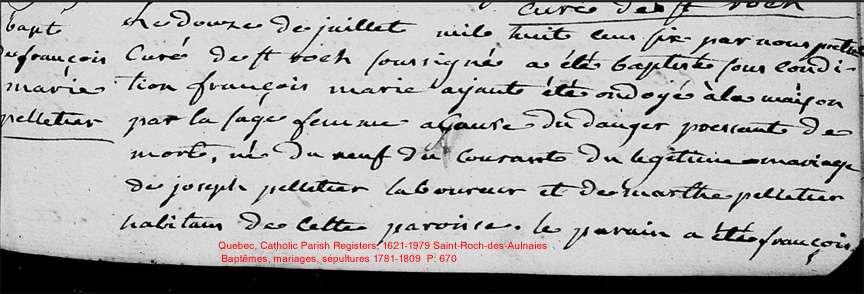 Curé de st roch
bapt
de françois
marie
pelletier
Le douze de juillet mil huit cens six par nous prêtre
Curé de st roch soussigné a été baptisé sous condi-
tion françois marie ayant été ondoyé à la maison
par la sage femme a cause du danger pressant de
mort, né du neuf du courant du legitime mariage
de joseph pelletier laboureur et de marthe pelletier
habitans de cette paroisse. le parain a été françois
Quebec, Catholic Parish Registers, 1621-1979 Saint-Roch-des-Aulnaies
Baptêmes, mariages, sépultures 1781-1809 P: 670